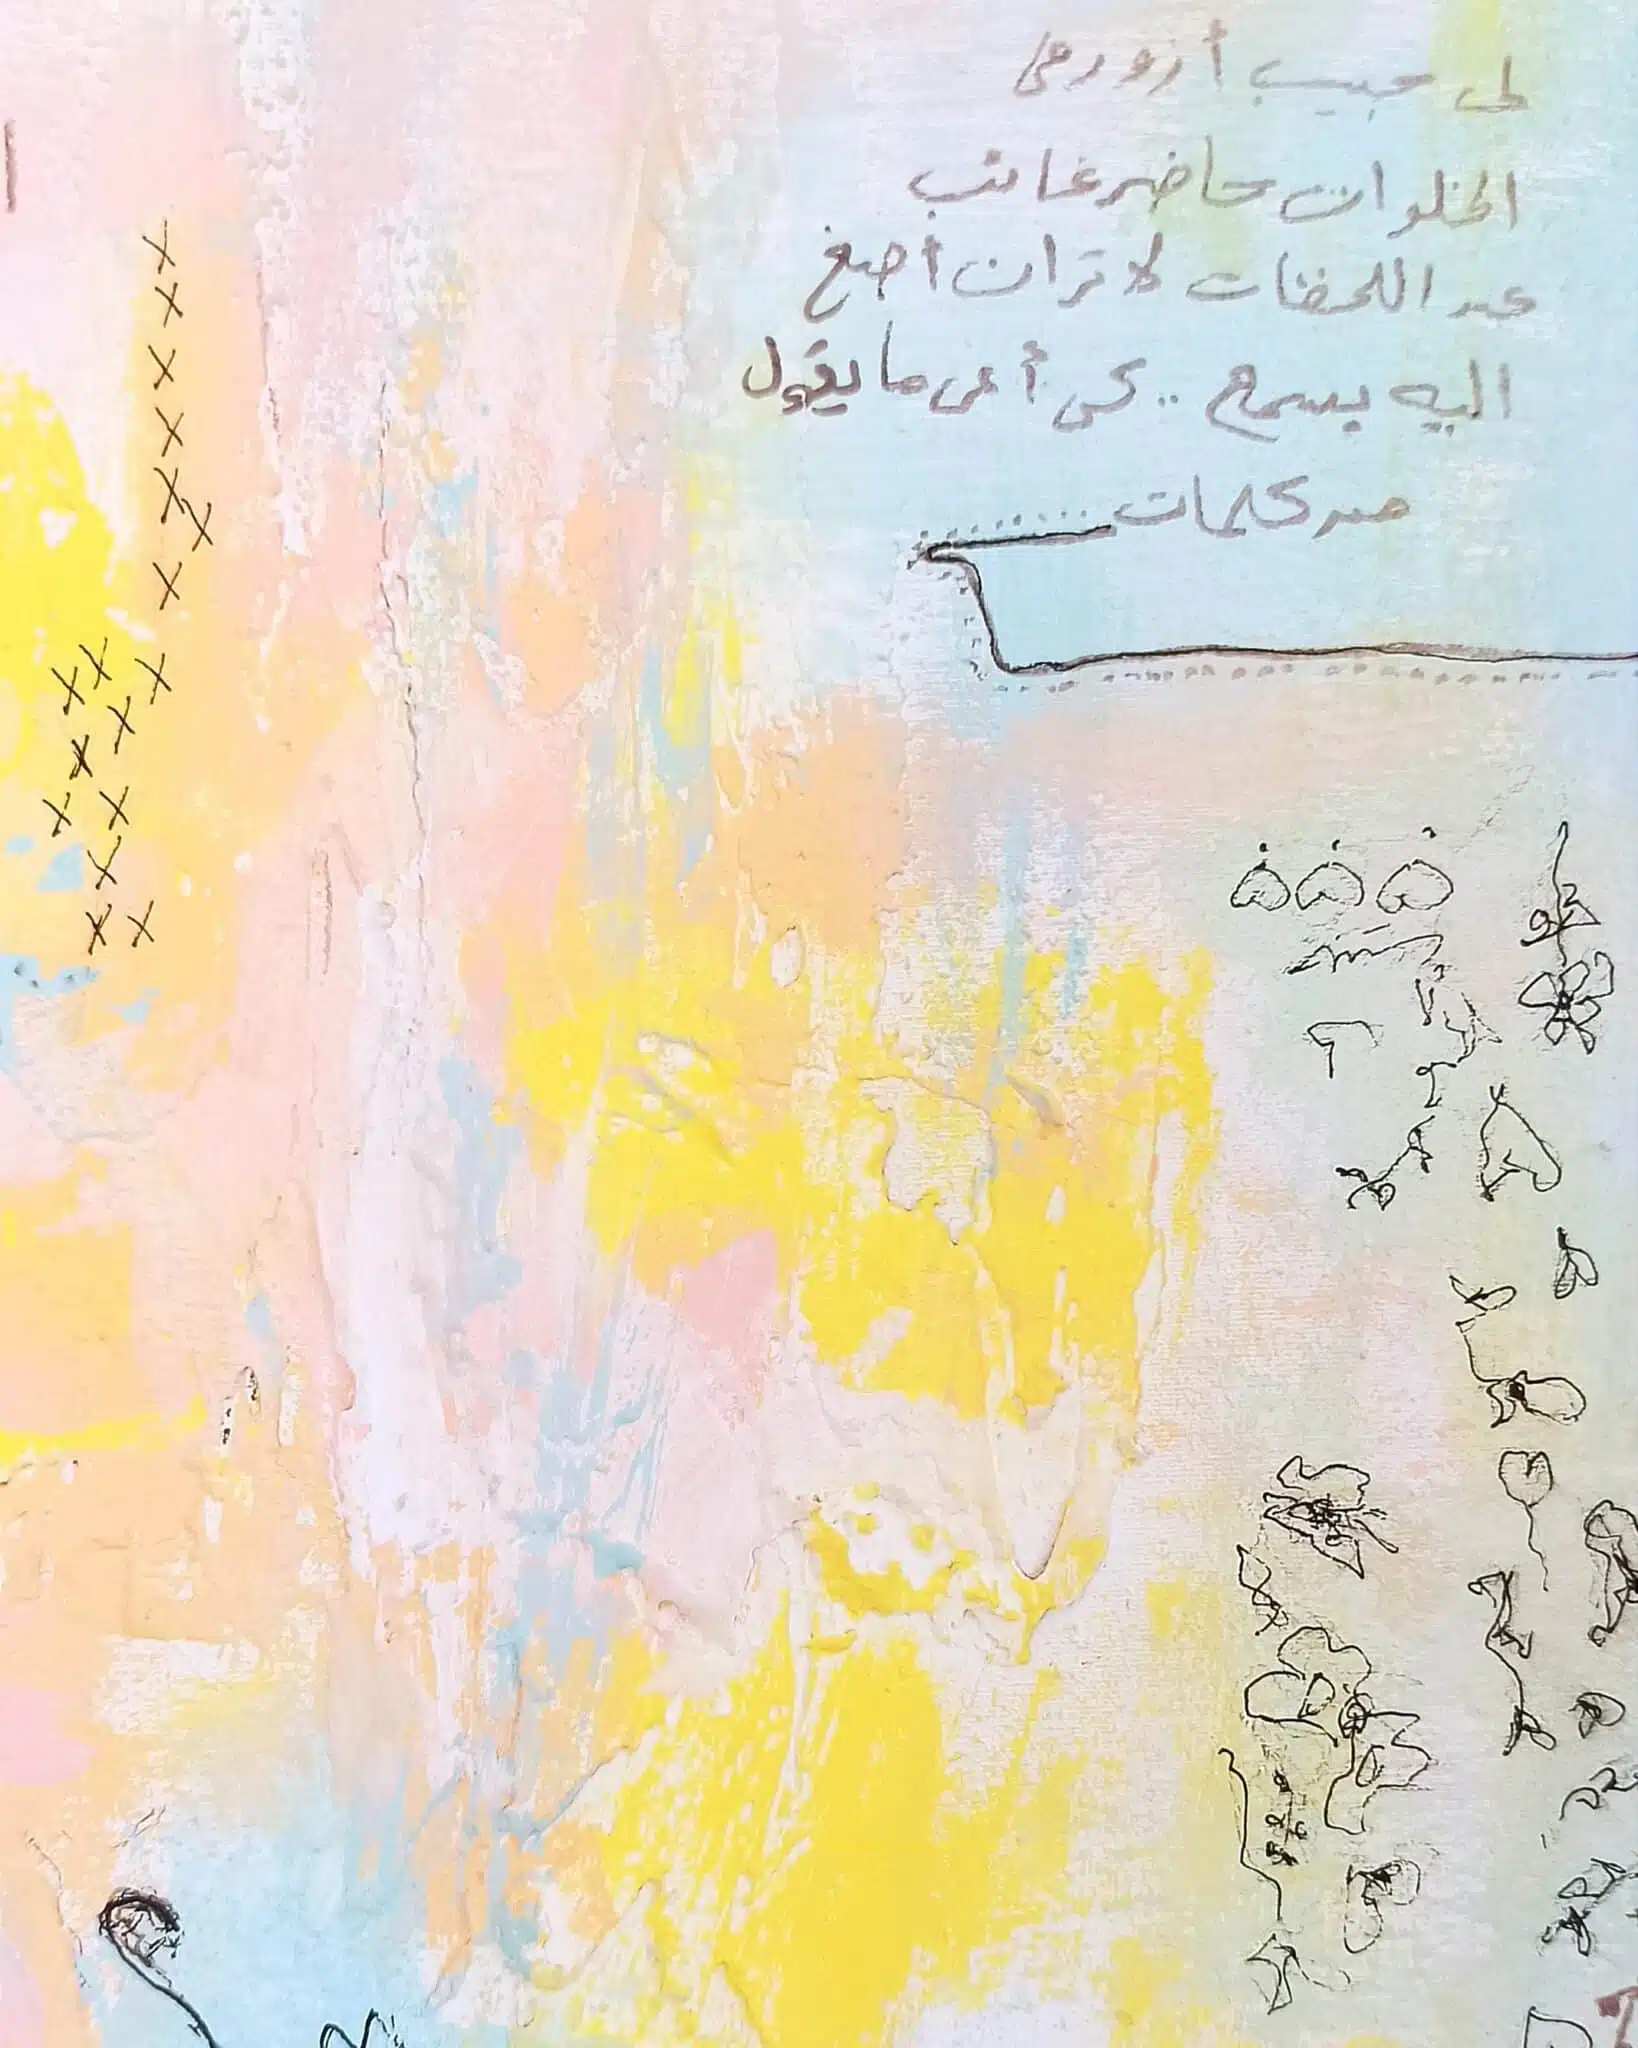 لى حبيب أزور فى
الخلوات حاضر غائب
عن اللحظات لا ترانى أصغ
اليه بسمع .. كى أعى ما يقول
من كلمات